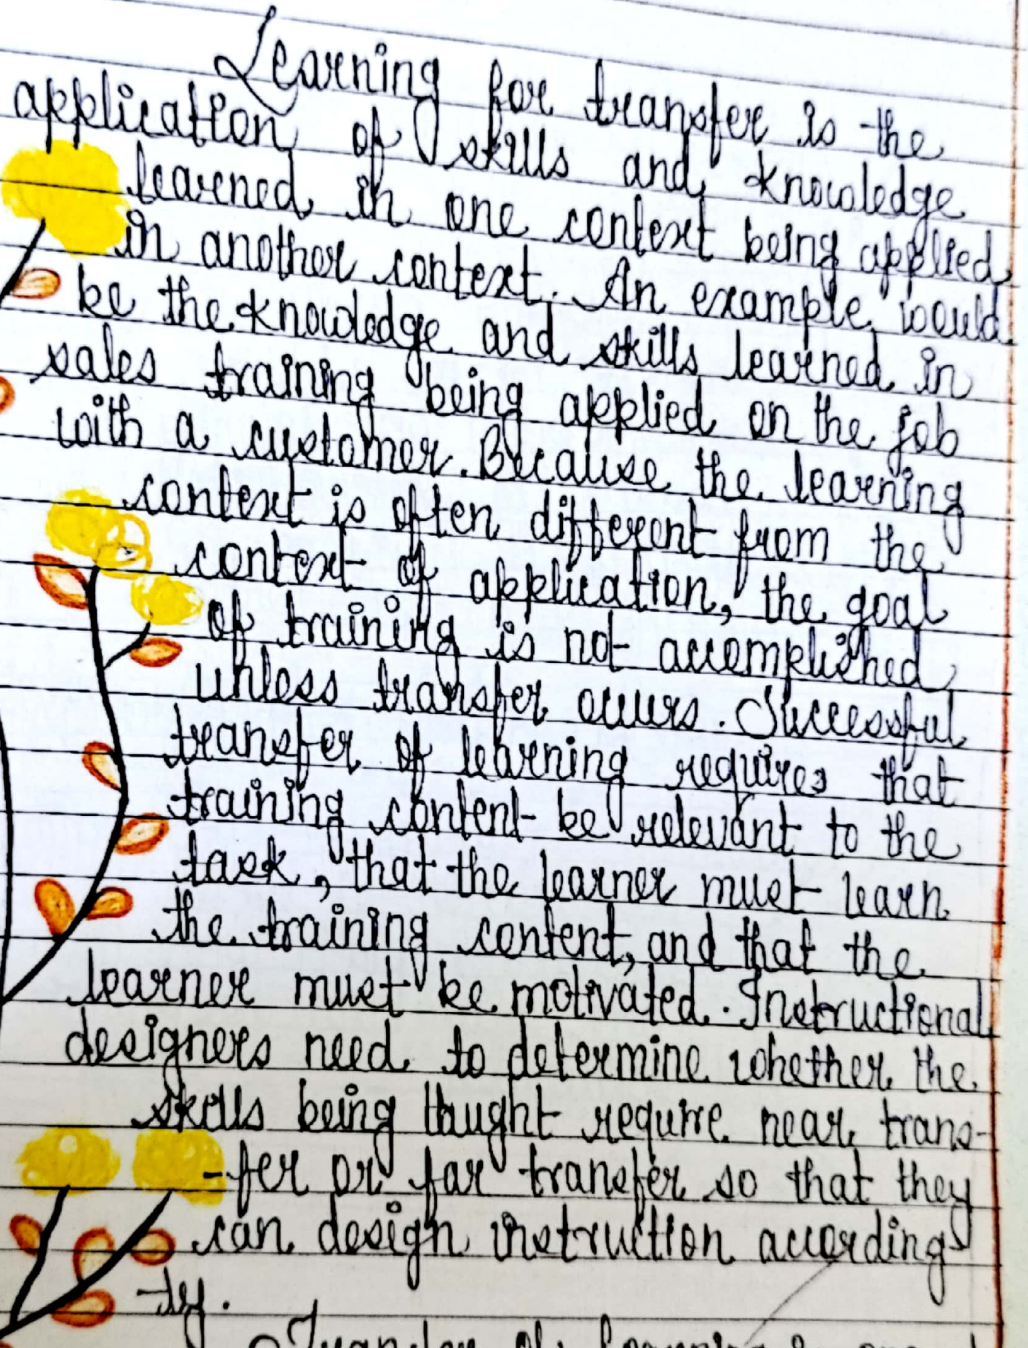 Learning for transfer is the
application of skills and knowledge
learned in one context being applied
in another context. An example would
be the knowledge and skills learned in
sales training being applied on the job
with a customer. Because the learning
context is often different from the
context of application, the goal
of training is not accomplished
unless transfer occurs. Successful
transfer of learning requires that
training content be relevant to the
task, that the learner must learn
the training content, and that the
learner must be motivated. Instructional
designers need to determine whether the
skills being thught require near trans-
-fer or far transfer so that they
can design instruction according
-ly.
Transfer of learning is